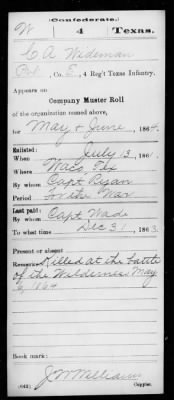 (Confederate.)
W 4 Texas.
C A Wideman
Pvt, Co. E, 4 Reg't Texas Infantry.
Appears on
Company Muster Roll
of the organization named above,
for May & June, 1864.
Enlisted:
When July 13, 1861.
Where Waco, Tex
By whom Capt Ryan
Period for the War
Last paid:
By whom Capt Wade
To what time Dec 31, 1863.
Present or absent
Remarks: Killed at the battle
of the Wilderness May
6 1864
Book mark:
J W Williams
(642) Copyist.